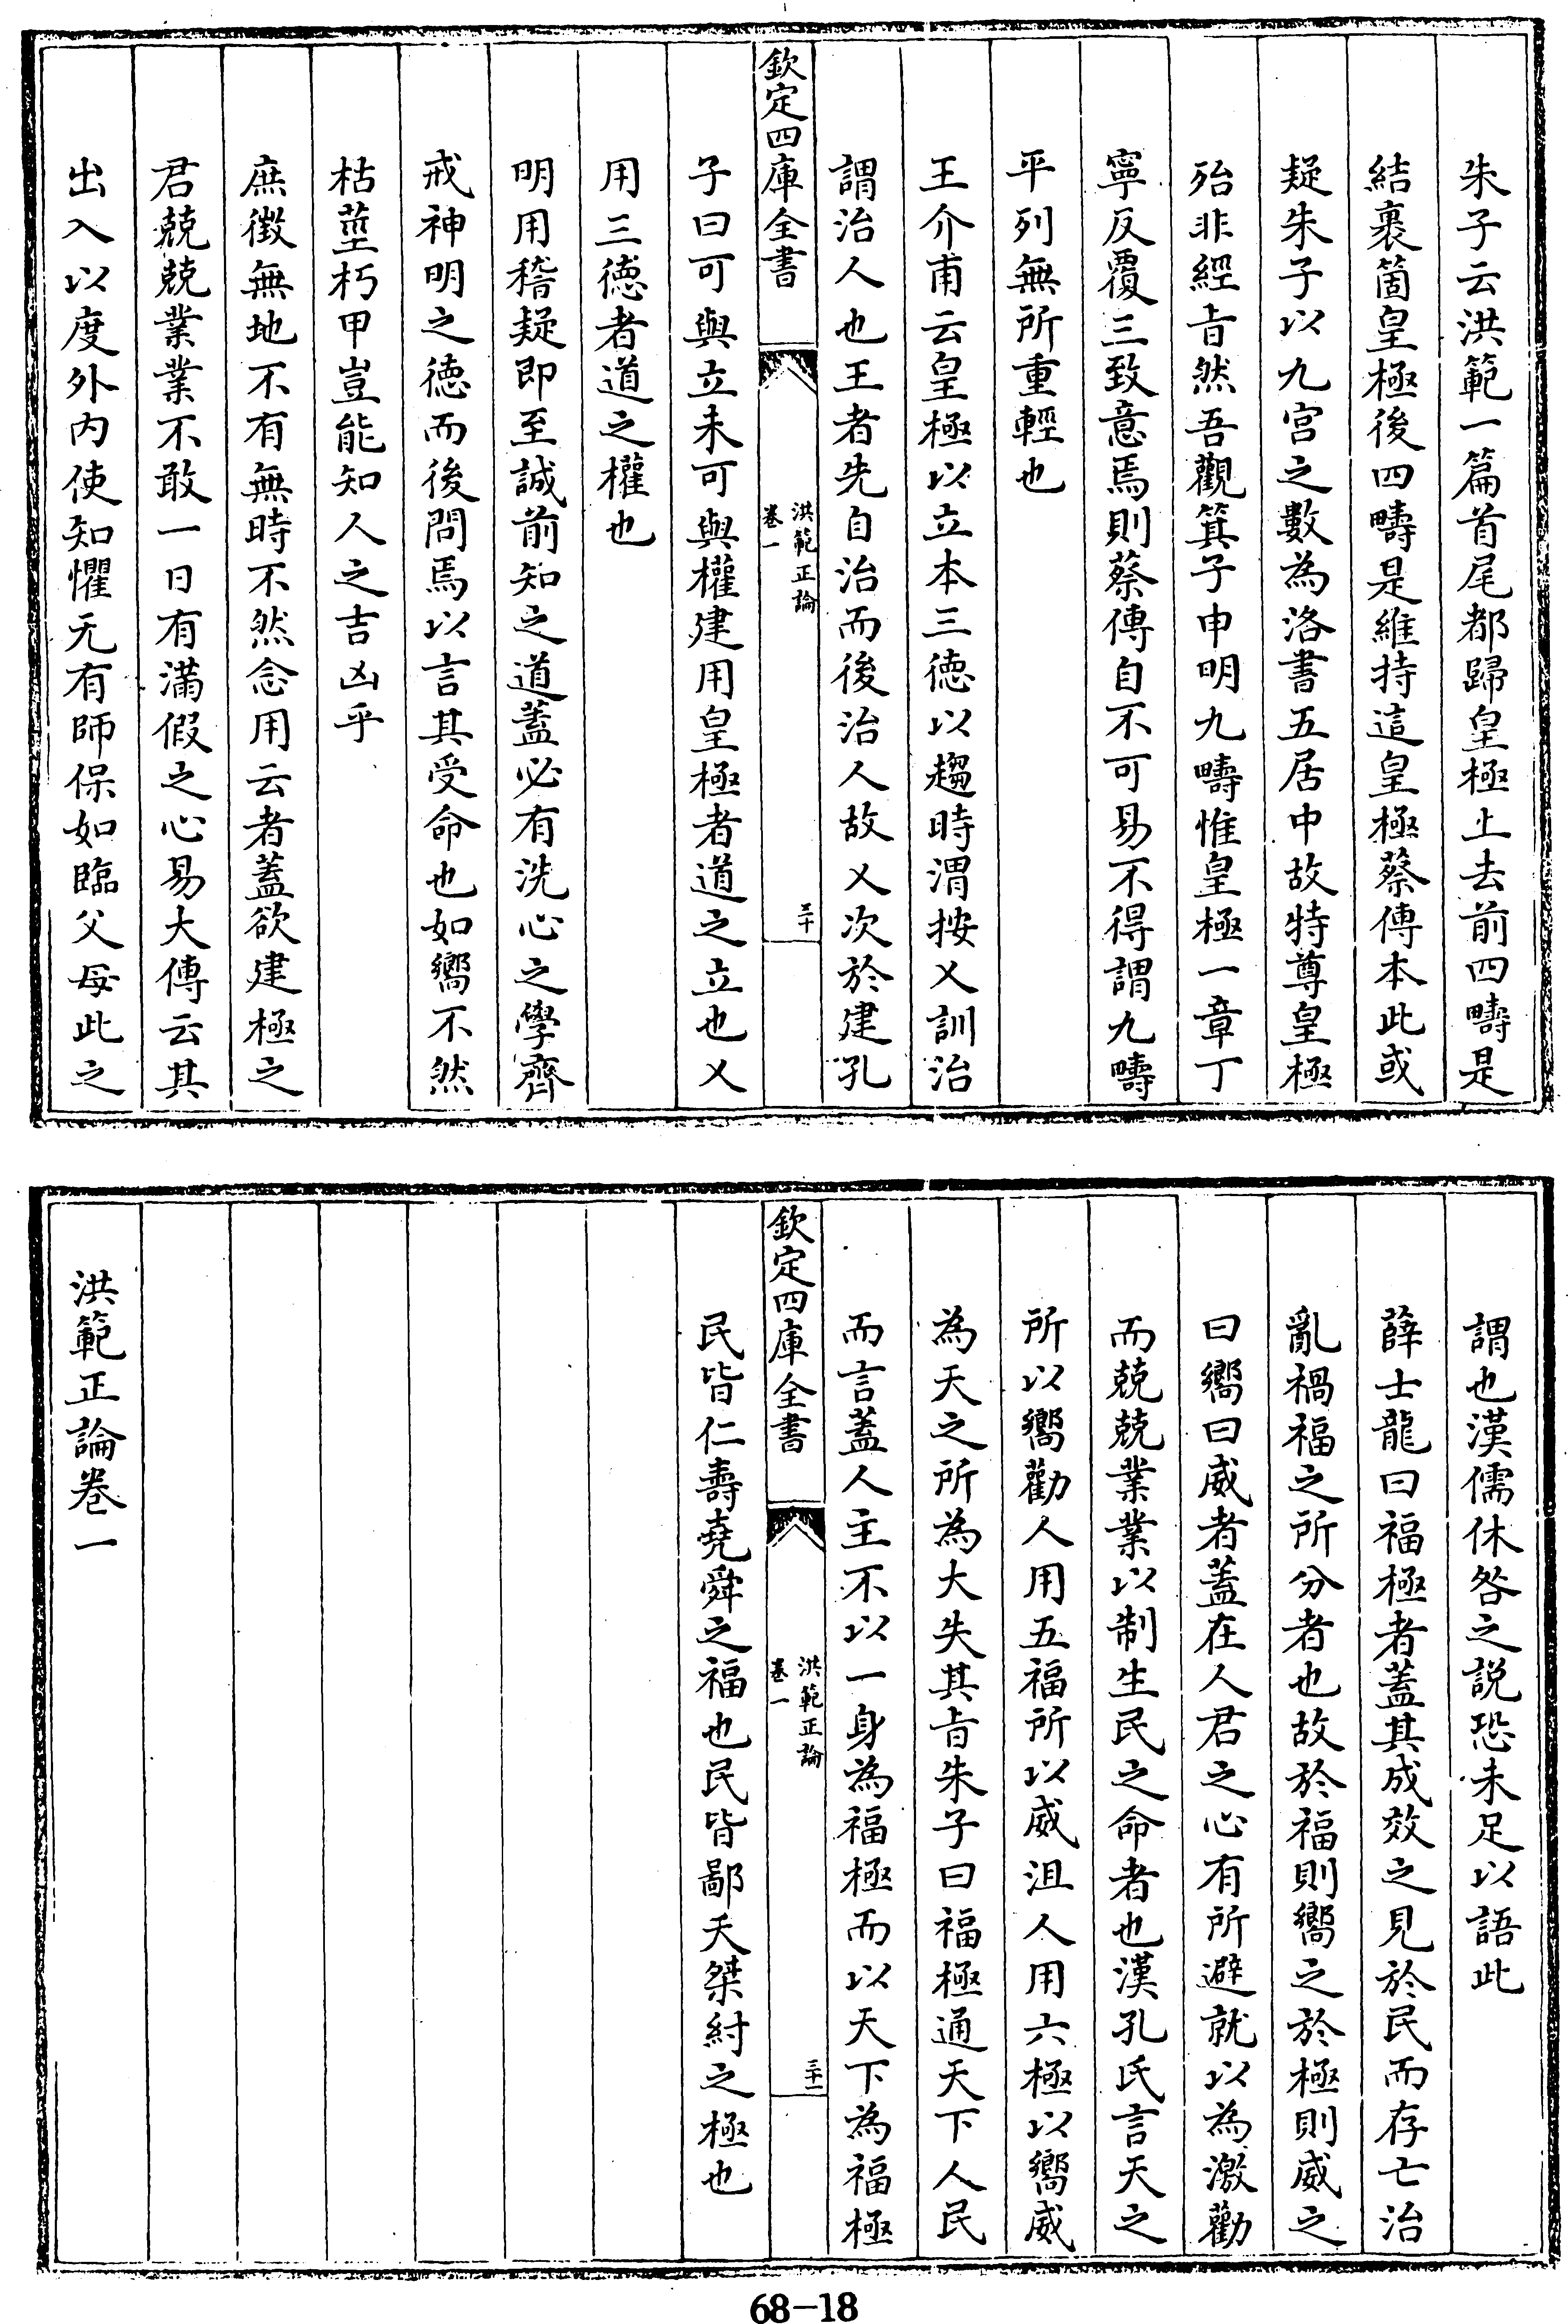 朱子云洪範一篇首尾都歸皇極上去前四疇是
結裹箇皇極後四疇是維持這皇極蔡傳本此或
疑朱子以九宫之數為洛書五居中故特尊皇極
殆非經㫖然吾觀箕子申明九疇惟皇極一章丁
寧反覆三致意焉則蔡傳自不可易不得謂九疇
平列無所重輕也
王介甫云皇極以立本三徳以趨時渭按乂訓治
謂治人也王者先自治而後治人故乂次於建孔
欽定四庫全書
洪範正論
卷一
三十
子曰可與立未可與權建用皇極者道之立也乂
用三徳者道之權也
明用稽疑即至誠前知之道蓋必有洗心之學齊
戒神明之徳而後問焉以言其受命也如嚮不然
枯莖朽甲豈能知人之吉凶乎
庶徵無地不有無時不然念用云者蓋欲建極之
君兢兢業業不敢一日有滿假之心易大傳云其
出入以度外内使知懼无有師保如臨父母此之
謂也漢儒休咎之説恐未足以語此
薛士龍曰福極者蓋其成效之見於民而存亡治
亂禍福之所分者也故於福則嚮之於極則威之
曰嚮曰威者蓋在人君之心有所避就以為激勸
而兢兢業業以制生民之命者也漢孔氏言天之
所以嚮勸人用五福所以威沮人用六極以嚮威
為天之所為大失其㫖朱子曰福極通天下人民
而言蓋人主不以一身為福極而以天下為福極
欽定四庫全書
洪範正論
卷一
三十一
民皆仁壽堯舜之福也民皆鄙夭桀紂之極也
洪範正論卷一
68-18